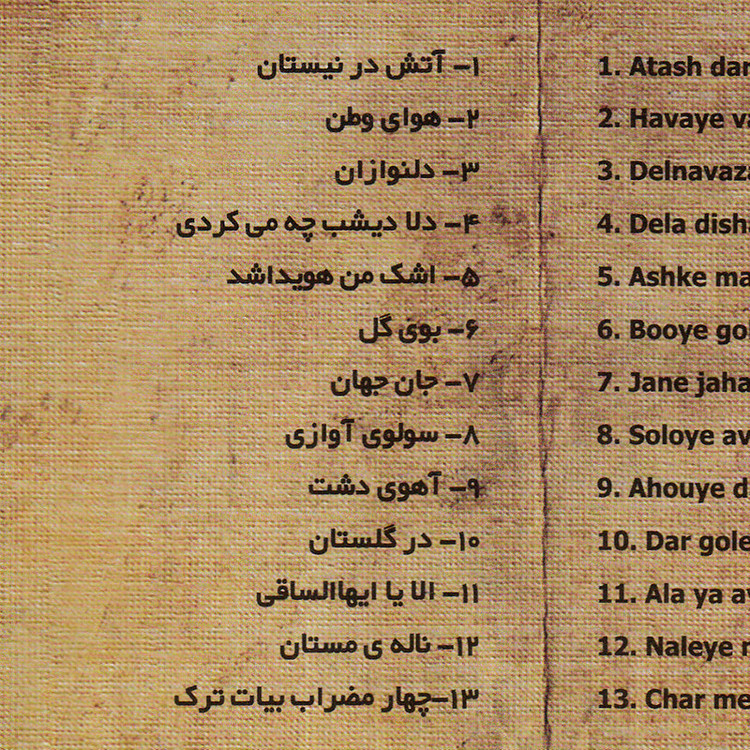 ۱- آتش در نیستان
۲- هوای وطن
۳- دلنوازان
۴- دلا دیشب چه می کردی
۵- اشک من هویداشد
۶- بوی گل
۷- جان جهان
۸- سولوی آوازی
۹- آهوی دشت
۱۰- در گلستان
۱۱- الا یا ایهاالساقی
۱۲- ناله ی مستان
۱۳-چهار مضراب بیات ترک
1. Atash dar
2. Havaye
3. Delnavaz
4. Dela
5. Ashke
6. Booye
7. Jane
8. Soloye
9. Ahouye
10. Dar
11. Ala ya
12. Naleye
13. Char